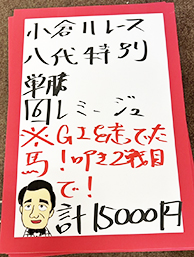 小倉11レース
八代特別
単勝
6レミージュ
※GⅠを走ってた
馬！叩き2戦目
で！
計15000円